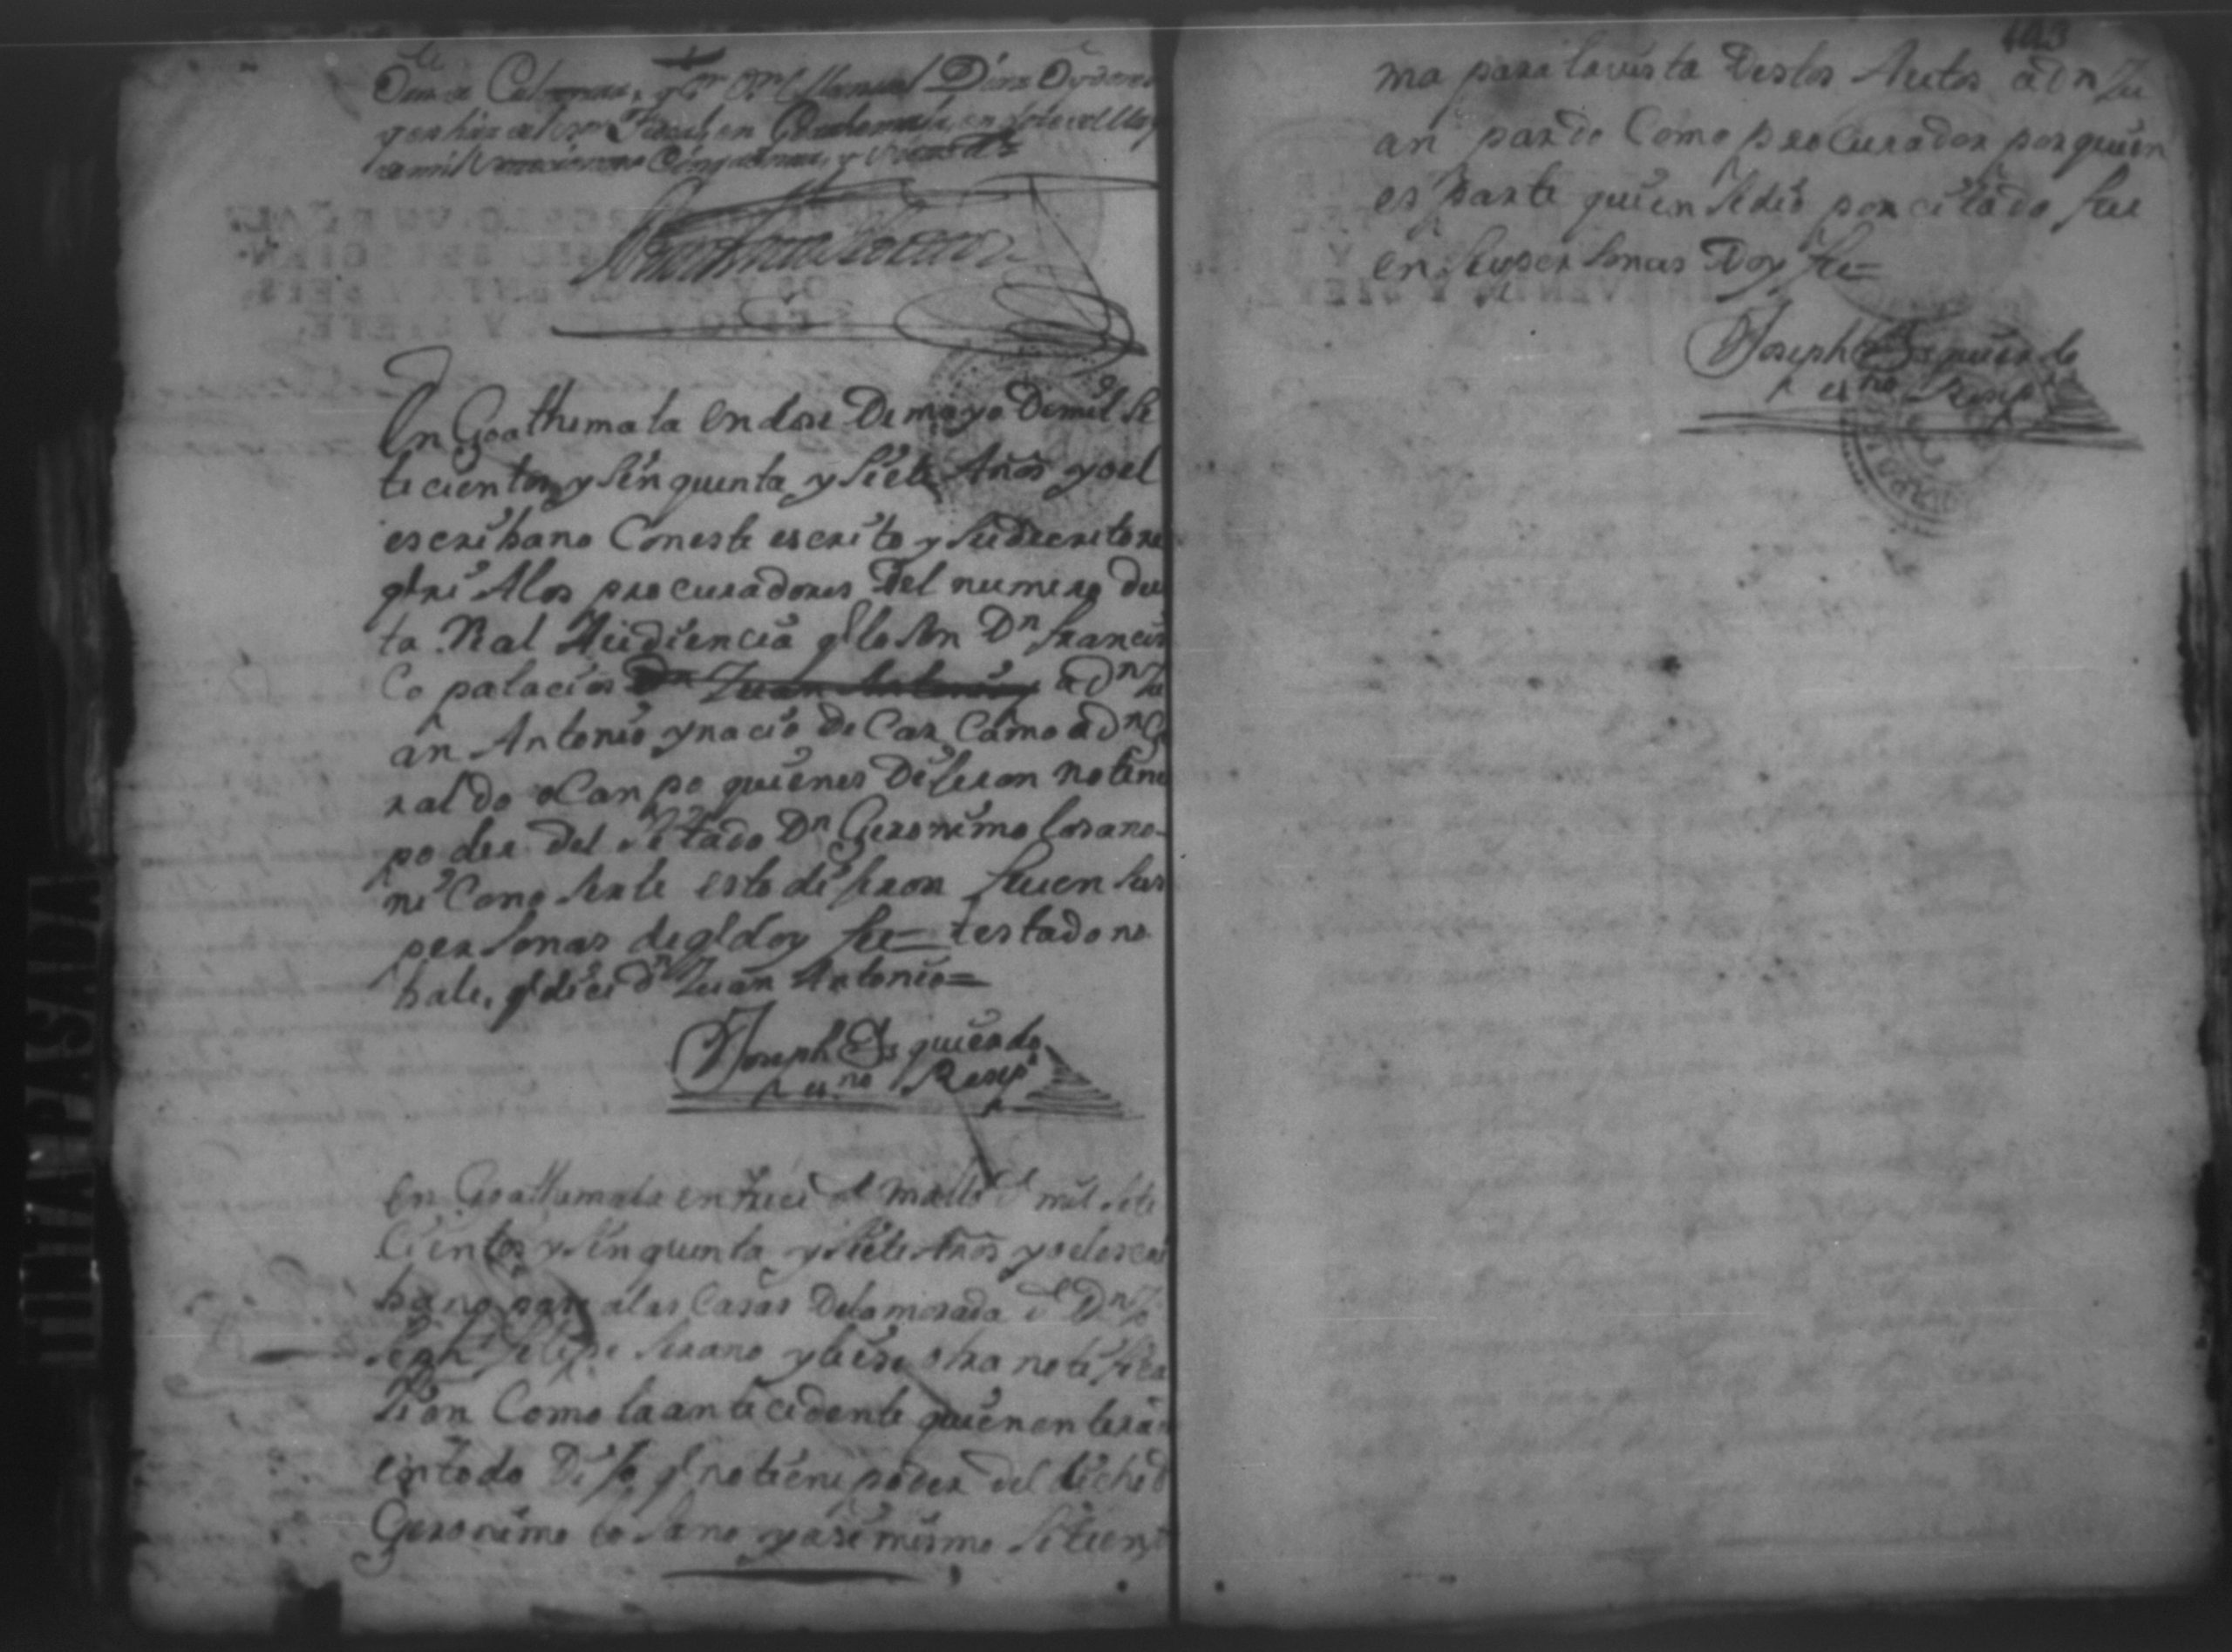 y en Guatemala, en
de mil setecientos Cinquenta, y
En Goathemala en dose De mayo De mil se
te cientos y sinquenta y siete Años yo el
escribano Con este escrito y su decreto re
qrí A los procuradores Del numero des
ta Ral Audiencia q lo son Dn francis
Co palacios Dn Juan Antonio y a Dn Ju
an Antonio ynacio De Carcamo a Dn G
raldo oCanpo quienes Diseron no tene
poder del sitado Dn Geronimo losano
ni Conoserle esto diseron fue en sus
personas de q doy fee= testado no
bale, q dice dn Juan Antonio=
Joseph Esquierdo
esno Resepr
En Goathemala en trece de maio de mil sete
cientos y sinquenta y siete Años yo el escri
bano pase a las Casas De la morada de Dn Jo
seph felipe serano y le ise otra notifica
sion Como la antecedente quien enterado
en todo Diso q no tiene poder del dicho D
Geronimo losano y asi mismo site en
193
ma para la vista Destos Autos a Dn Ju
an pardo Como procurador por quien
es parte quien se dio por citado fue
en su persona Doy fee=
Joseph Esquierdo
esno Resepr